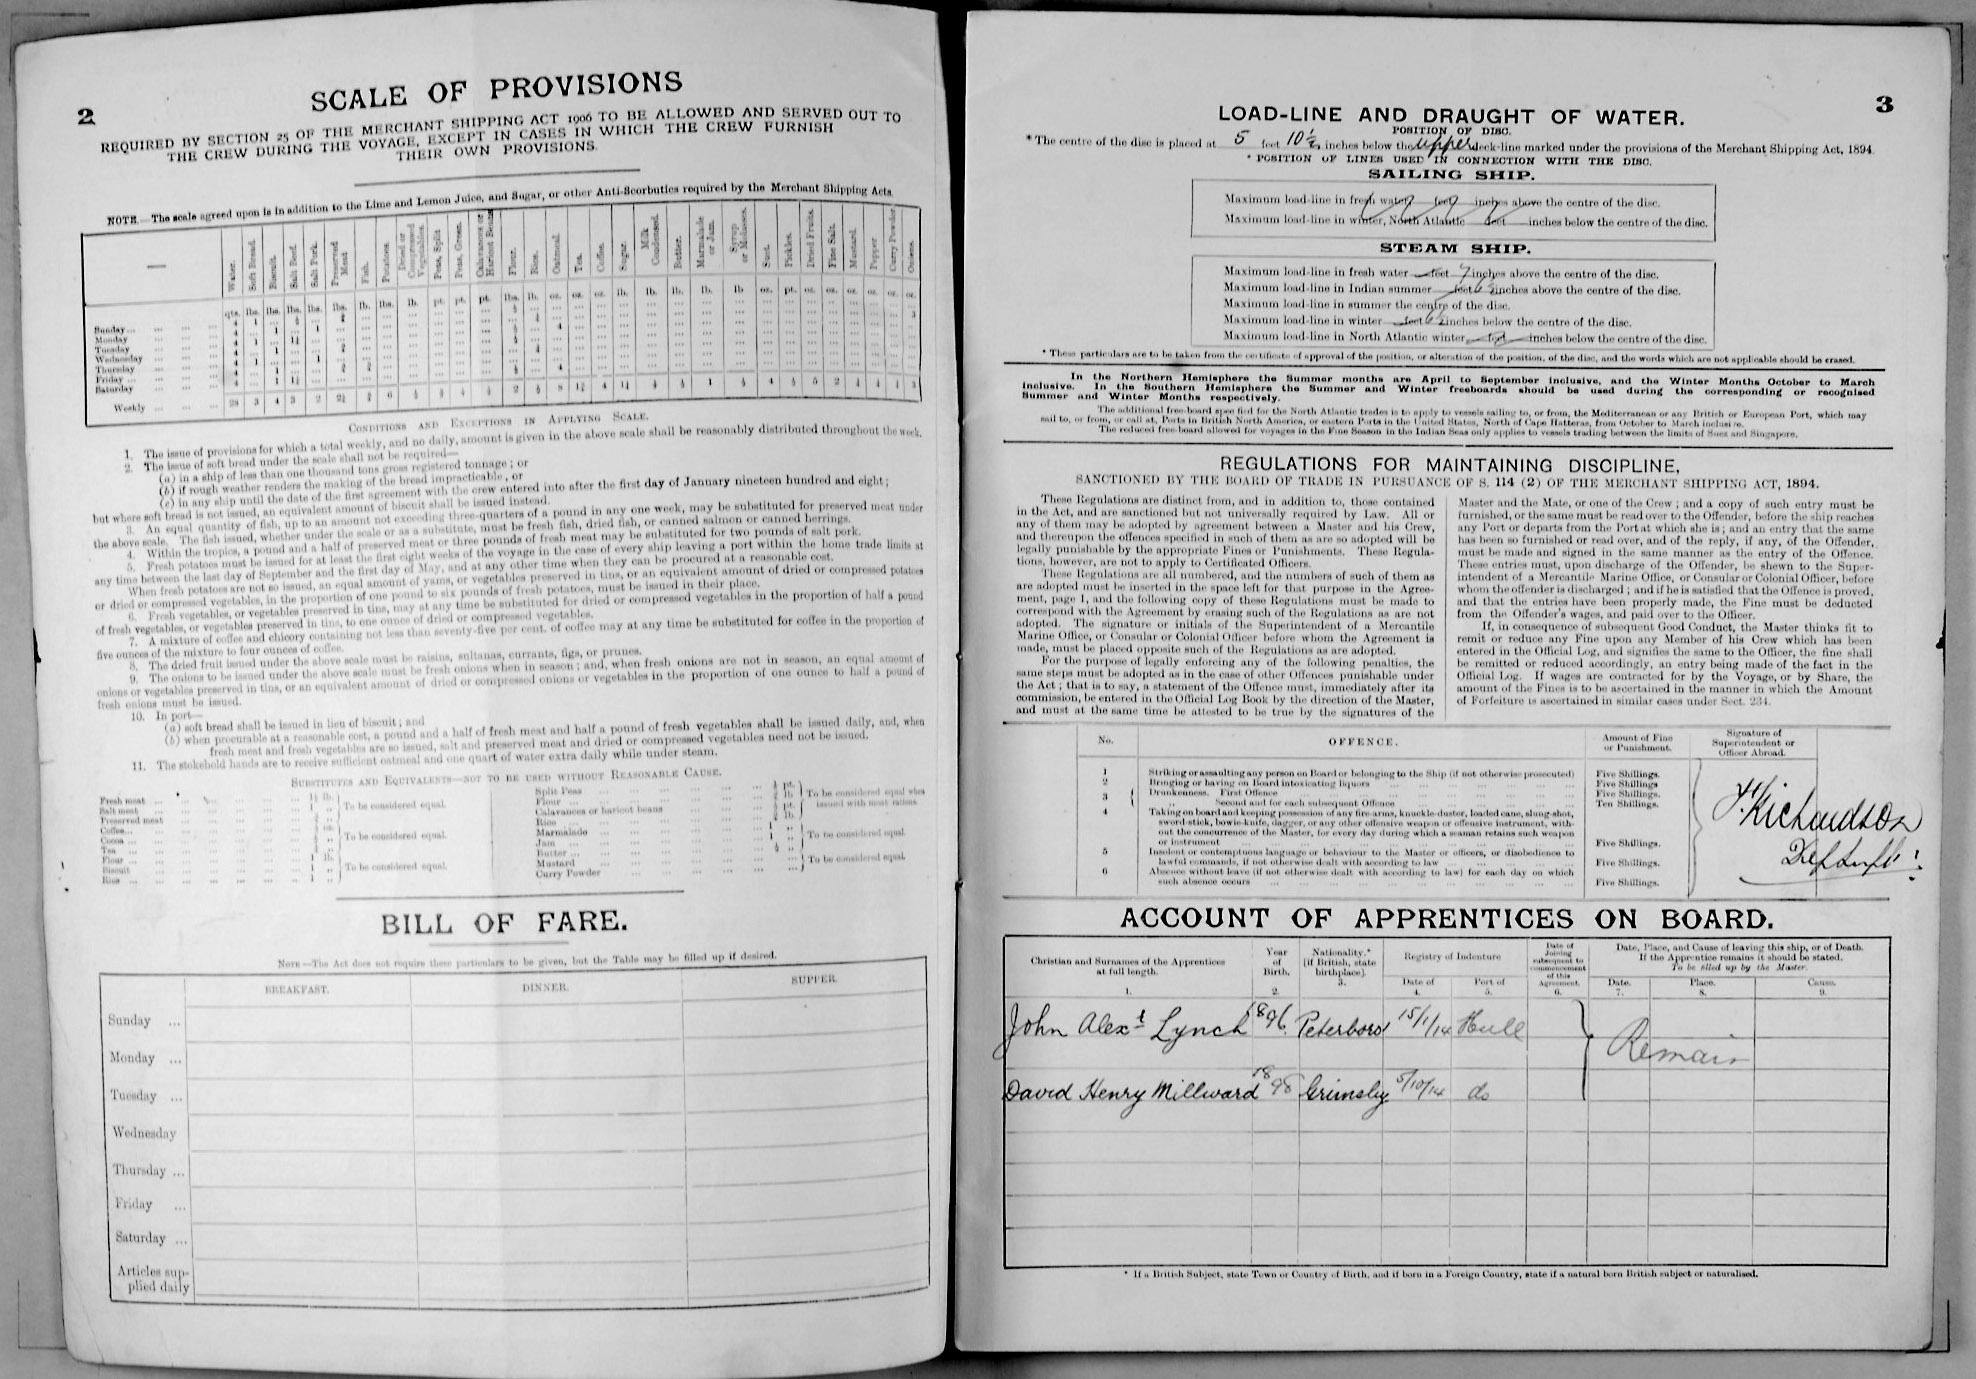 2
SCALE OF PROVISIONS
REQUIRED BY SECTION 25 OF THE MERCHANT SHIPPING ACT 1906 TO BE ALLOWED AND SERVED OUT TO
THE CREW DURING THE VOYAGE, EXCEPT IN CASES IN WHICH THE CREW FURNISH
THEIR OWN PROVISIONS.
NOTE.—The scale agreed upon is in addition to the Lime and Lemon Juice, and Sugar, or other Anti-Scorbutics required by the Merchant Shipping Acts.
Water. Soft Bread. Biscuit. Salt Beef. Salt Pork. Preserved Meat Fish. Potatoes. Dried or Compressed Vegetables. Peas, Split Peas, Green. Calavances or Haricot Beans Flour. Rice. Oatmeal. Tea. Coffee. Sugar. Milk Condensed. Butter. Marmalade or Jam. Syrup or Molasses. Suet. Pickles. Dried Fruits. Fine Salt. Mustard. Pepper Curry Powder Onions.
qts. lbs. lbs. lbs. lbs. lbs. lb. lbs. lb. pt. pt. pt. lbs. lb. oz. oz. oz. lb. lb. lb. lb. lb oz. pt. oz. oz. oz. oz. oz. oz.
Sunday ...
Monday
Tuesday
Wednesday
Thursday
Friday ...
Saturday
Weekly
CONDITIONS AND EXCEPTIONS IN APPLYING SCALE.
1. The issue of provisions for which a total weekly, and no daily, amount is given in the above scale shall be reasonably distributed throughout the week.
2. The issue of soft bread under the scale shall not be required—
(a) in a ship of less than one thousand tons gross registered tonnage; or
(b) if rough weather renders the making of the bread impracticable, or
(c) in any ship until the date of the first agreement with the crew entered into after the first day of January nineteen hundred and eight;
but where soft bread is not issued, an equivalent amount of biscuit shall be issued instead.
3. An equal quantity of fish, up to an amount not exceeding three-quarters of a pound in any one week, may be substituted for preserved meat under
the above scale. The fish issued, whether under the scale or as a substitute, must be fresh fish, dried fish, or canned salmon or canned herrings.
4. Within the tropics, a pound and a half of preserved meat or three pounds of fresh meat may be substituted for two pounds of salt pork.
5. Fresh potatoes must be issued for at least the first eight weeks of the voyage in the case of every ship leaving a port within the home trade limits at
any time between the last day of September and the first day of May, and at any other time when they can be procured at a reasonable cost.
When fresh potatoes are not so issued, an equal amount of yams, or vegetables preserved in tins, or an equivalent amount of dried or compressed potatoes
or dried or compressed vegetables, in the proportion of one pound to six pounds of fresh potatoes, must be issued in their place.
6. Fresh vegetables, or vegetables preserved in tins, may at any time be substituted for dried or compressed vegetables in the proportion of half a pound
of fresh vegetables, or vegetables preserved in tins, to one ounce of dried or compressed vegetables.
7. A mixture of coffee and chicory containing not less than seventy-five per cent. of coffee may at any time be substituted for coffee in the proportion of
five ounces of the mixture to four ounces of coffee.
8. The dried fruit issued under the above scale must be raisins, sultanas, currants, figs, or prunes.
9. The onions to be issued under the above scale must be fresh onions when in season; and, when fresh onions are not in season, an equal amount of
onions or vegetables preserved in tins, or an equivalent amount of dried or compressed onions or vegetables in the proportion of one ounce to half a pound of
fresh onions must be issued.
10. In port—
(a) soft bread shall be issued in lieu of biscuit; and
(b) when procurable at a reasonable cost, a pound and a half of fresh meat and half a pound of fresh vegetables shall be issued daily, and, when
fresh meat and fresh vegetables are so issued, salt and preserved meat and dried or compressed vegetables need not be issued.
11. The stokehold hands are to receive sufficient oatmeal and one quart of water extra daily while under steam.
SUBSTITUTES AND EQUIVALENTS—NOT TO BE USED WITHOUT REASONABLE CAUSE.
Fresh meat
Salt meat
Preserved meat
To be considered equal.
Coffee...
Cocoa ...
Tea
To be considered equal.
Flour ...
Biscuit
Rice
To be considered equal.
Split Peas
Flour
Calavances or haricot beans
Rice
To be considered equal when issued with meat rations.
Marmalade
Jam
Butter
To be considered equal.
Mustard
Curry Powder
To be considered equal.
BILL OF FARE.
NOTE—The Act does not require these particulars to be given, but the Table may be filled up if desired.
BREAKFAST. DINNER. SUPPER.
Sunday ...
Monday ...
Tuesday ...
Wednesday
Thursday ...
Friday ...
Saturday ...
Articles sup-
plied daily
3
LOAD-LINE AND DRAUGHT OF WATER.
POSITION OF DISC.
* The centre of the disc is placed at 5 feet 10½ inches below the upper deck-line marked under the provisions of the Merchant Shipping Act, 1894.
* POSITION OF LINES USED IN CONNECTION WITH THE DISC.
SAILING SHIP.
Maximum load-line in fresh water feet inches above the centre of the disc.
Maximum load-line in winter, North Atlantic feet inches below the centre of the disc.
STEAM SHIP.
Maximum load-line in fresh water feet 7 inches above the centre of the disc.
Maximum load-line in Indian summer feet 6½ inches above the centre of the disc.
Maximum load-line in summer the centre of the disc.
Maximum load-line in winter feet 6½ inches below the centre of the disc.
Maximum load-line in North Atlantic winter feet inches below the centre of the disc.
* These particulars are to be taken from the certificate of approval of the position, or alteration of the position, of the disc, and the words which are not applicable should be erased.
In the Northern Hemisphere the Summer months are April to September inclusive, and the Winter Months October to March
inclusive. In the Southern Hemisphere the Summer and Winter freeboards should be used during the corresponding or recognised
Summer and Winter Months respectively.
The additional free-board specified for the North Atlantic trades is to apply to vessels sailing to, or from, the Mediterranean or any British or European Port, which may
sail to, or from, or call at, Ports in British North America, or eastern Ports in the United States, North of Cape Hatteras, from October to March inclusive.
The reduced free-board allowed for voyages in the Fine Season in the Indian Seas only applies to vessels trading between the limits of Suez and Singapore.
REGULATIONS FOR MAINTAINING DISCIPLINE,
SANCTIONED BY THE BOARD OF TRADE IN PURSUANCE OF S. 114 (2) OF THE MERCHANT SHIPPING ACT, 1894.
These Regulations are distinct from, and in addition to, those contained
in the Act, and are sanctioned but not universally required by Law. All or
any of them may be adopted by agreement between a Master and his Crew,
and thereupon the offences specified in such of them as are so adopted will be
legally punishable by the appropriate Fines or Punishments. These Regula-
tions, however, are not to apply to Certificated Officers.
These Regulations are all numbered, and the numbers of such of them as
are adopted must be inserted in the space left for that purpose in the Agree-
ment, page 1, and the following copy of these Regulations must be made to
correspond with the Agreement by erasing such of the Regulations as are not
adopted. The signature or initials of the Superintendent of a Mercantile
Marine Office, or Consular or Colonial Officer before whom the Agreement is
made, must be placed opposite such of the Regulations as are adopted.
For the purpose of legally enforcing any of the following penalties, the
same steps must be adopted as in the case of other Offences punishable under
the Act; that is to say, a statement of the Offence must, immediately after its
commission, be entered in the Official Log Book by the direction of the Master,
and must at the same time be attested to be true by the signatures of the
Master and the Mate, or one of the Crew; and a copy of such entry must be
furnished, or the same must be read over to the Offender, before the ship reaches
any Port or departs from the Port at which she is; and an entry that the same
has been so furnished or read over, and of the reply, if any, of the Offender,
must be made and signed in the same manner as the entry of the Offence.
These entries must, upon discharge of the Offender, be shewn to the Super-
intendent of a Mercantile Marine Office, or Consular or Colonial Officer, before
whom the offender is discharged; and if he is satisfied that the Offence is proved,
and that the entries have been properly made, the Fine must be deducted
from the Offender's wages, and paid over to the Officer.
If, in consequence of subsequent Good Conduct, the Master thinks fit to
remit or reduce any Fine upon any Member of his Crew which has been
entered in the Official Log, and signifies the same to the Officer, the fine shall
be remitted or reduced accordingly, an entry being made of the fact in the
Official Log. If wages are contracted for by the Voyage, or by Share, the
amount of the Fines is to be ascertained in the manner in which the Amount
of Forfeiture is ascertained in similar cases under Sect. 234.
No. OFFENCE. Amount of Fine or Punishment. Signature of Superintendent or Officer Abroad.
1 Striking or assaulting any person on Board or belonging to the Ship (if not otherwise prosecuted) Five Shillings.
2 Bringing or having on Board intoxicating liquors Five Shillings.
3 Drunkenness. First Offence Five Shillings.
Second and for each subsequent Offence Ten Shillings.
4 Taking on board and keeping possession of any fire-arms, knuckle-duster, loaded cane, slung-shot,
sword-stick, bowie-knife, dagger, or any other offensive weapon or offensive instrument, with-
out the concurrence of the Master, for every day during which a seaman retains such weapon
or instrument Five Shillings.
5 Insolent or contemptuous language or behaviour to the Master or officers, or disobedience to
lawful commands, if not otherwise dealt with according to law Five Shillings.
6 Absence without leave (if not otherwise dealt with according to law) for each day on which
such absence occurs Five Shillings.
Richardson
ACCOUNT OF APPRENTICES ON BOARD.
Christian and Surnames of the Apprentices at full length. 1.
Year of Birth. 2.
Nationality.* (if British, state birthplace). 3.
Registry of Indenture
Date of 4.
Port of 5.
Date of Joining subsequent to commencement of this Agreement. 6.
Date, Place, and Cause of leaving this ship, or of Death.
If the Apprentice remains it should be stated.
To be filled up by the Master.
Date. 7. Place. 8. Cause. 9.
John Alexr Lynch 1896 Peterboro' 15/1/14 Hull
Remain
David Henry Millward 1898 Grimsby 5/10/14 do
* If a British Subject, state Town or Country of Birth, and if born in a Foreign Country, state if a natural born British subject or naturalised.